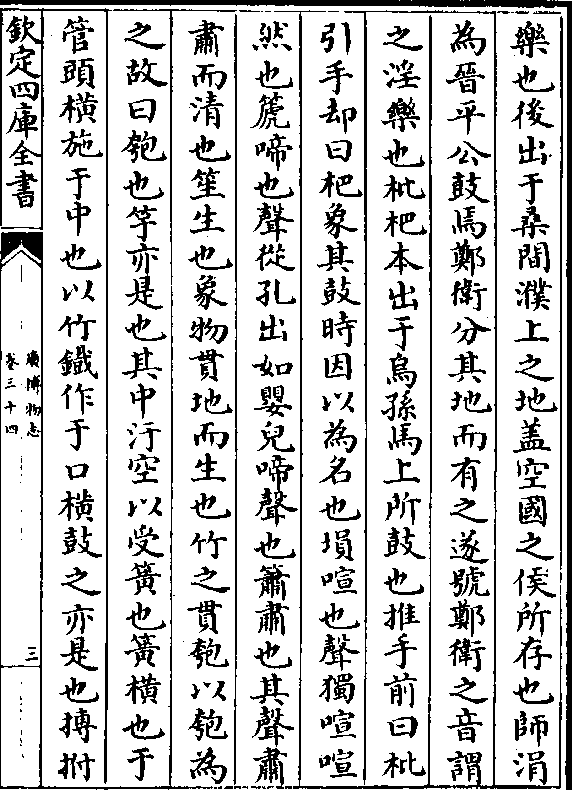 樂也後出于桑間濮上之地盖空國之侯所存也師涓
為晉平公鼓焉鄭衛分其地而有之遂號鄭衛之音謂
之淫樂也枇杷本出于烏孫馬上所鼓也推手前曰枇
引手却曰杷象其鼓時因以為名也塤喧也聲獨喧喧
然也箎啼也聲從孔出如嬰兒啼聲也簫肅也其聲肅
肅而清也笙生也象物貫地而生也竹之貫匏以匏為
之故曰匏也竽亦是也其中汙空以受簧也簧橫也于
管頭橫施于中也以竹鐵作于口橫鼓之亦是也搏拊
欽定四庫全書
廣博物志
卷三十四
三